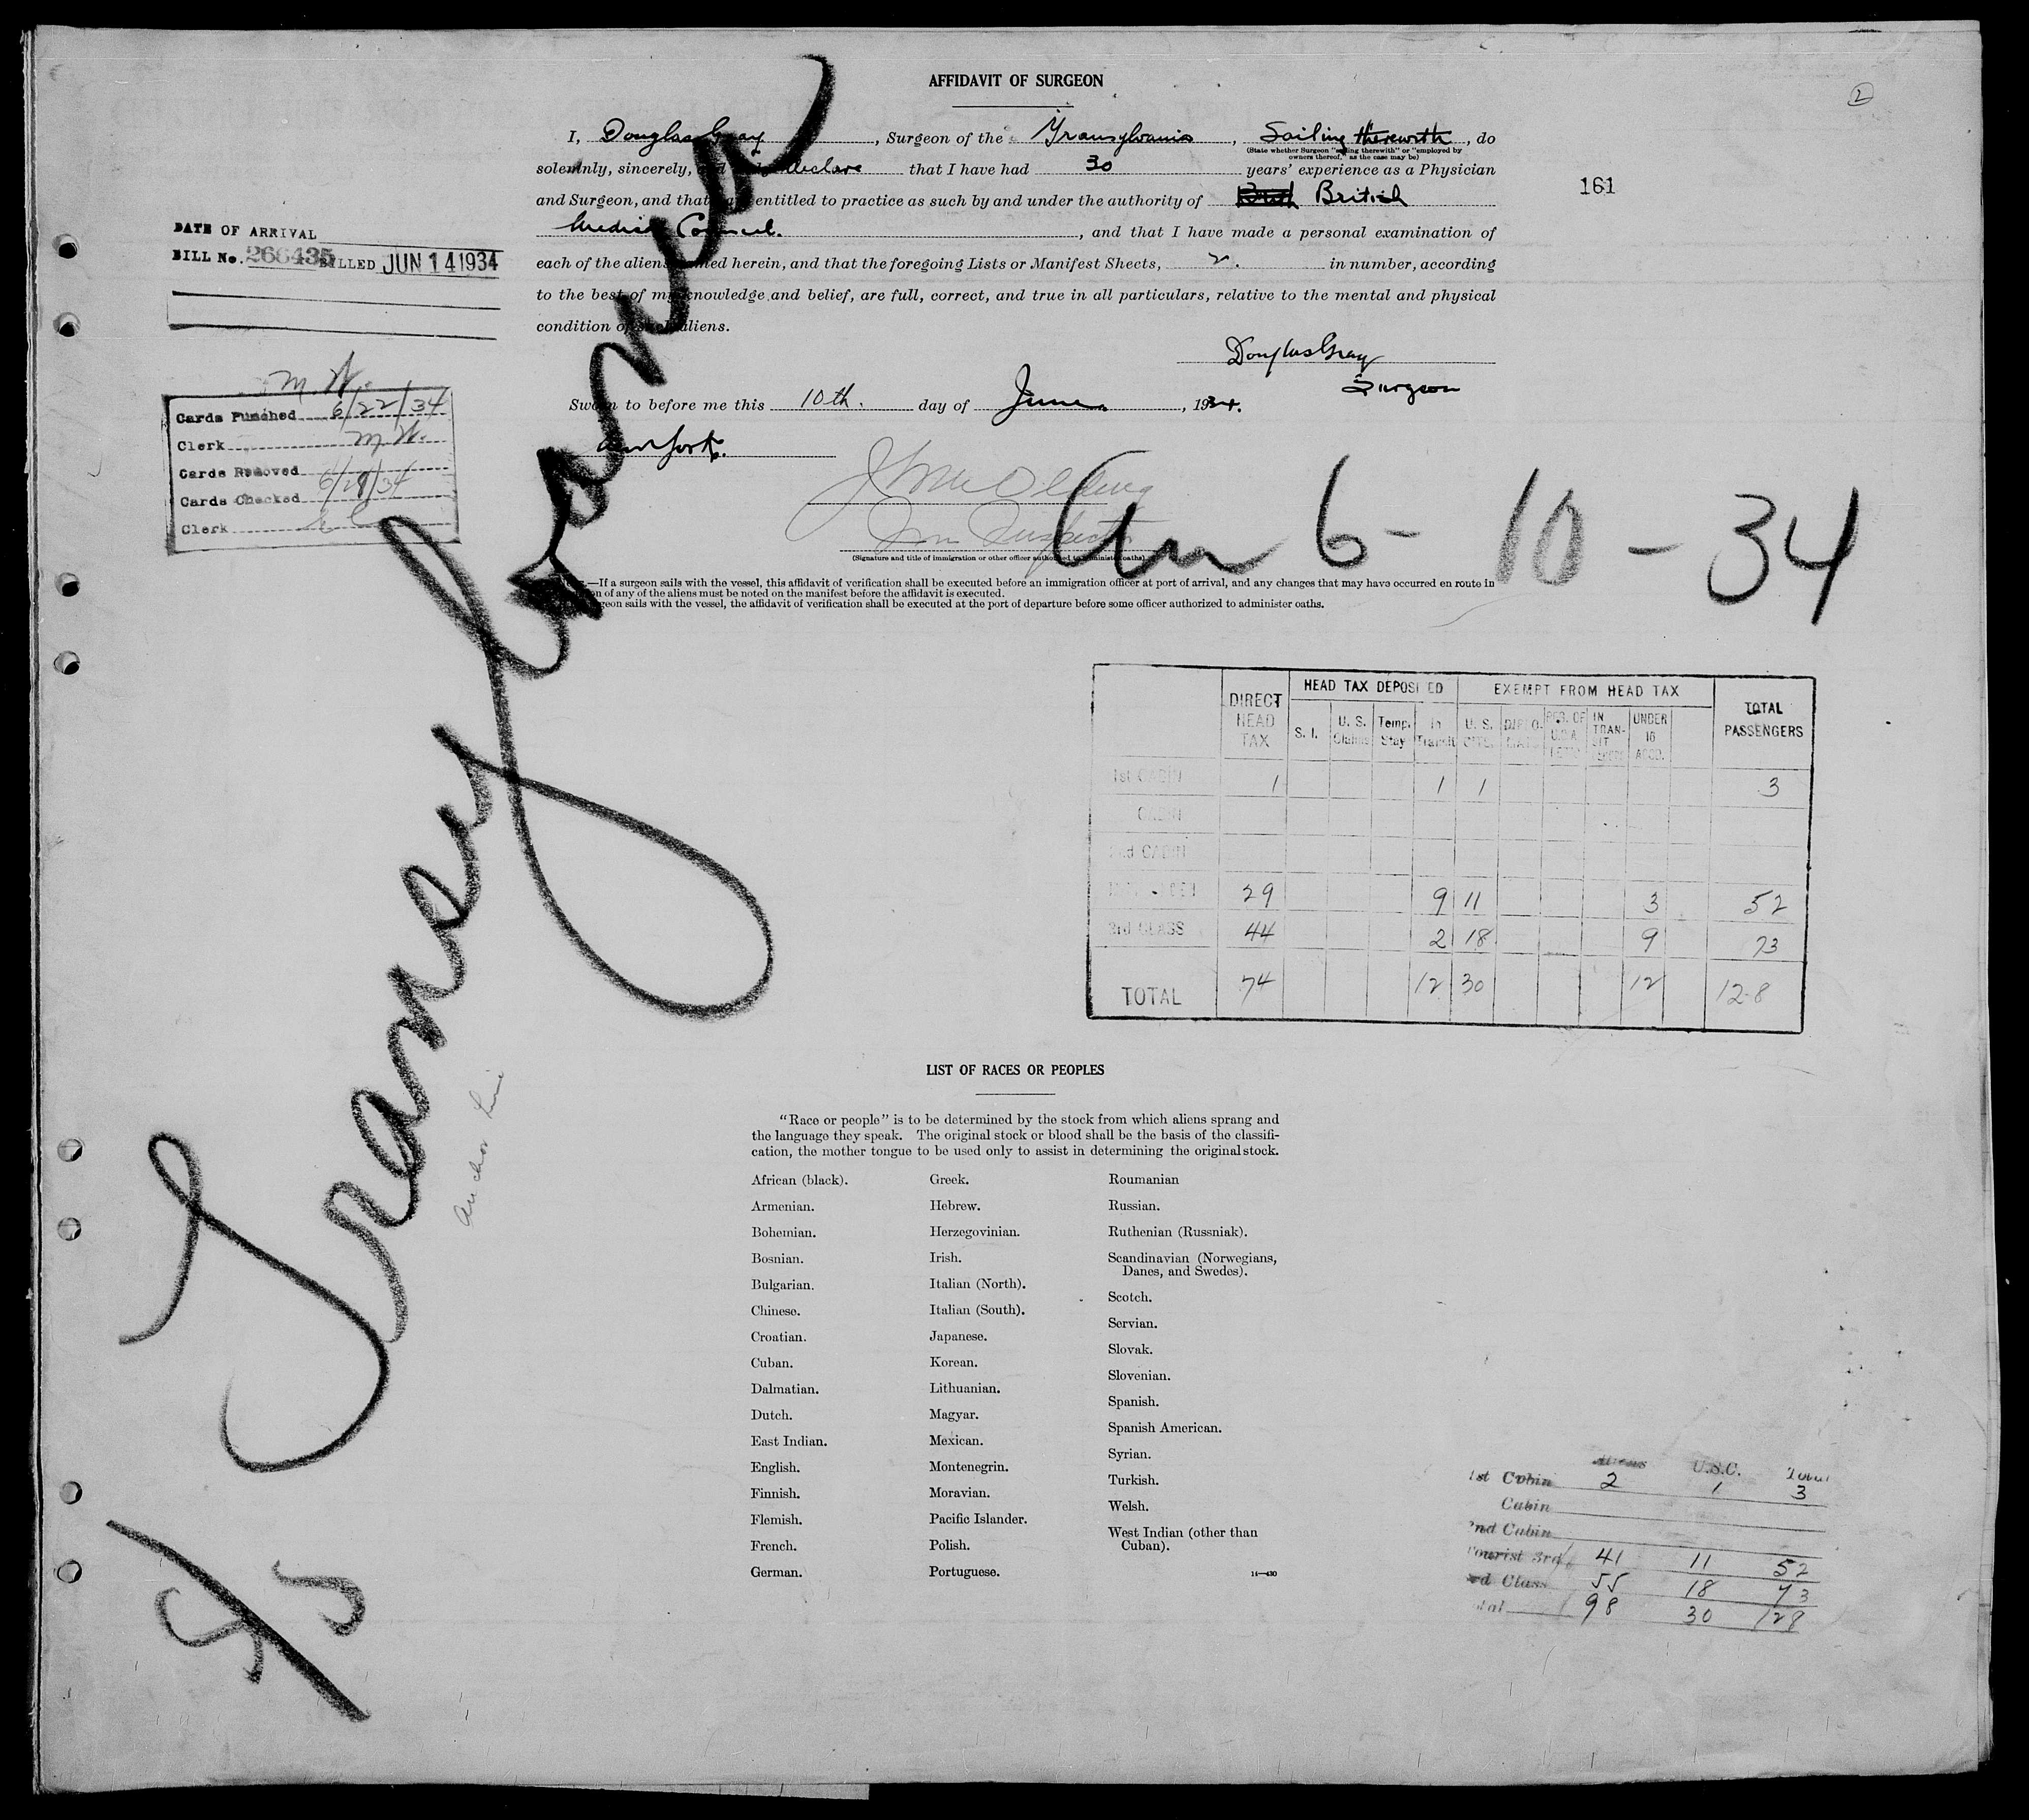 AFFIDAVIT OF SURGEON
2
I, Douglas Gray, Surgeon of the Transylvania, Sailing therewith, do
(State whether Surgeon "sailing therewith" or "employed by
owners thereof," as the case may be)
solemnly, sincerely, and declare that I have had 30 years' experience as a Physician
161
and Surgeon, and that entitled to practice as such by and under the authority of British
Medical Council., and that I have made a personal examination of
each of the aliens named herein, and that the foregoing Lists or Manifest Sheets, 2. in number, according
to the best of my knowledge and belief, are full, correct, and true in all particulars, relative to the mental and physical
condition of such aliens.
Douglas Gray
Surgeon
Sworn to before me this 10th. day of June, 1934.
New York.
Imm Inspector
(Signature and title of immigration or other officer authorized to administer oaths)
—If a surgeon sails with the vessel, this affidavit of verification shall be executed before an immigration officer at port of arrival, and any changes that may have occurred en route in
of any of the aliens must be noted on the manifest before the affidavit is executed.
surgeon sails with the vessel, the affidavit of verification shall be executed at the port of departure before some officer authorized to administer oaths.
DATE OF ARRIVAL
BILL No. 266435 BILLED JUN 14 1934
M. W.
Cards Punched 6/22/34
Clerk M. W.
Cards Removed
Cards Checked 6/28/34
Clerk
6-10-34
S/S Transylvania
Anchor Line
DIRECT HEAD TAX
HEAD TAX DEPOSITED
EXEMPT FROM HEAD TAX
TOTAL PASSENGERS
S. I. U. S. Claims Temp. Stay In Transit U. S. CITS. DIPLO. IN TRANSIT UNDER 16 ACCO.
1st CABIN 1 1 1 3
CABIN
2nd CABIN
29 9 11 3 52
3rd CLASS 44 2 18 9 73
TOTAL 74 12 30 12 128
LIST OF RACES OR PEOPLES
"Race or people" is to be determined by the stock from which aliens sprang and
the language they speak. The original stock or blood shall be the basis of the classifi-
cation, the mother tongue to be used only to assist in determining the original stock.
African (black).
Armenian.
Bohemian.
Bosnian.
Bulgarian.
Chinese.
Croatian.
Cuban.
Dalmatian.
Dutch.
East Indian.
English.
Finnish.
Flemish.
French.
German.
Greek.
Hebrew.
Herzegovinian.
Irish.
Italian (North).
Italian (South).
Japanese.
Korean.
Lithuanian.
Magyar.
Mexican.
Montenegrin.
Moravian.
Pacific Islander.
Polish.
Portuguese.
Roumanian
Russian.
Ruthenian (Russniak).
Scandinavian (Norwegians,
Danes, and Swedes).
Scotch.
Servian.
Slovak.
Slovenian.
Spanish.
Spanish American.
Syrian.
Turkish.
Welsh.
West Indian (other than
Cuban).
14—430
Aliens U.S.C. Total
1st Cabin 2 1 3
Cabin
2nd Cabin
Tourist 3rd 41 11 52
3rd Class 55 18 73
Total 98 30 128